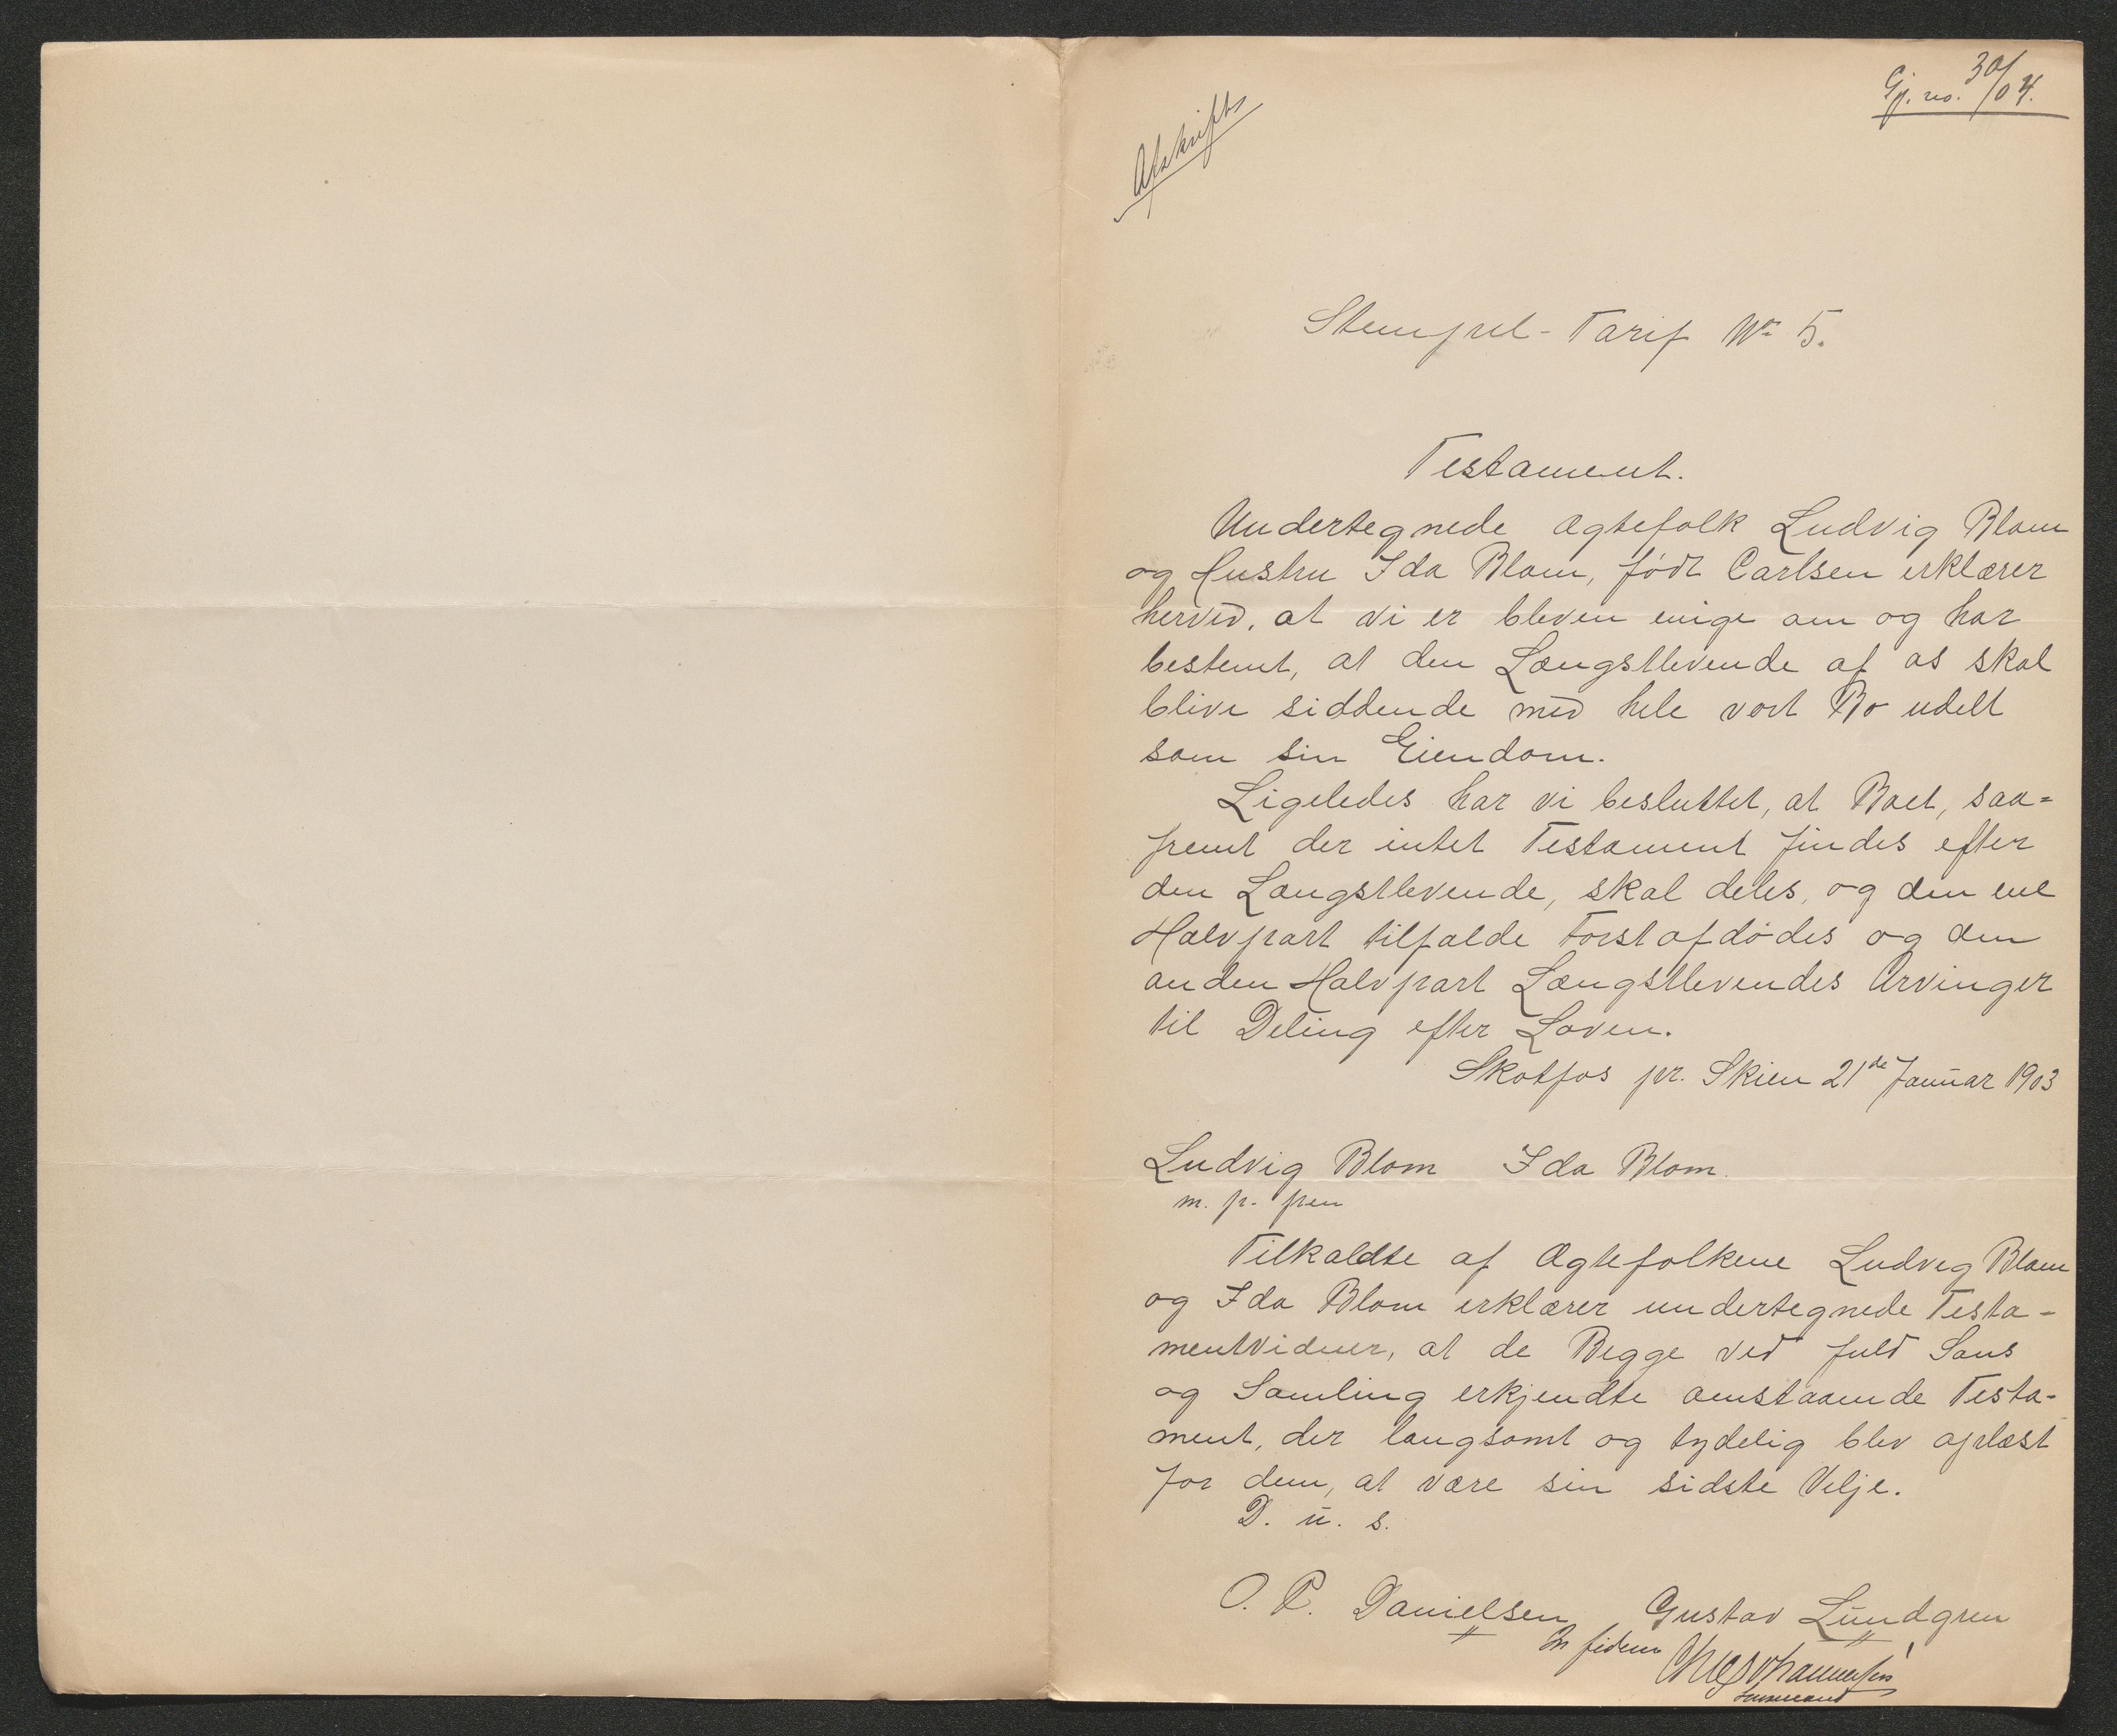 Gj. no. 30/04.
Afskrift
Stempel-Tarif No 5.
Testament.
Undertegnede Ægtefolk Ludvig Blom
og Hustru Ida Blom, født Carlsen erklærer
herved, at vi er bleven enige om og har
bestemt, at den Længstlevende af os skal
blive siddende med hele vort Bo udelt
som sin Eiendom.
Ligeledes har vi besluttet, at Boet, saa=
fremt der intet Testament findes efter
den Længstlevende, skal deles, og den ene
Halvpart tilfalde Førstafdødes og den
anden Halvpart Længstlevendes Arvinger
til Deling efter Loven.
Skotfos pr. Skien 21de Januar 1903
Ludvig Blom Ida Blom.
m. p. pen
Tilkaldte af Ægtefolkene Ludvig Blom
og Ida Blom erklærer undertegnede Testa-
mentvidner, at de Begge ved fuld Sans
og Samling erkjendte omstaaende Testa-
ment, der langsomt og tydelig blev oplæst
for dem, at være sin sidste Vilje.
D. u. s.
O. P. Danielsen Gustav Lundgren
In fidem
Lensmand